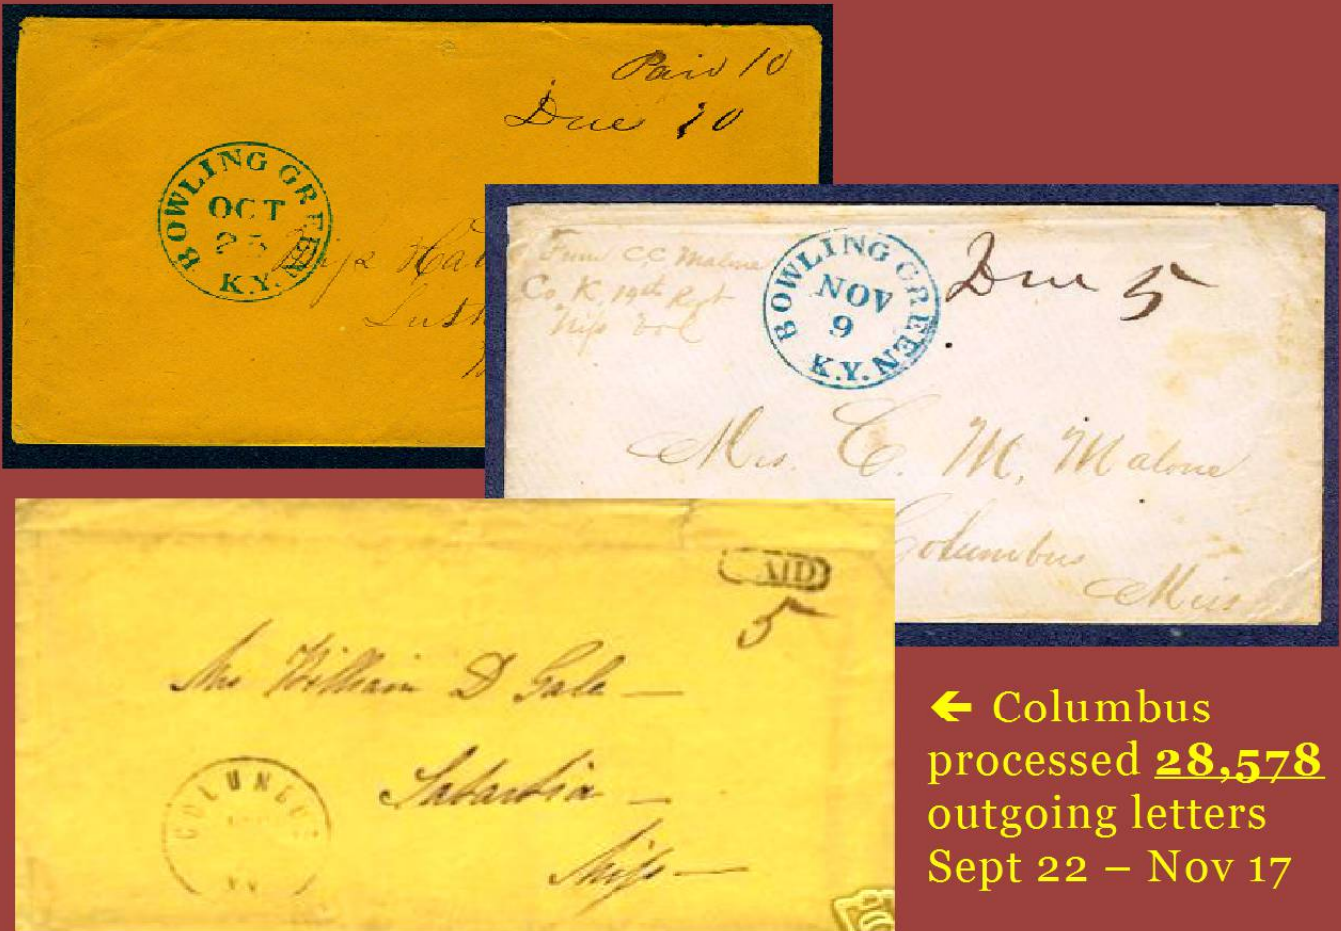 Paid 10
Due 10
BOWLING GREEN
OCT
25
K.Y.
Miss
From C C Malone
Co. K, 19th Regt
Miss Vol
BOWLING GREEN
NOV
9
K.Y.
Due 5
Mrs. C. M. Malone
Columbus
Miss
5
Mr William D Gale
Satartia
Miss
COLUMBUS
← Columbus
processed 28,578
outgoing letters
Sept 22 – Nov 17